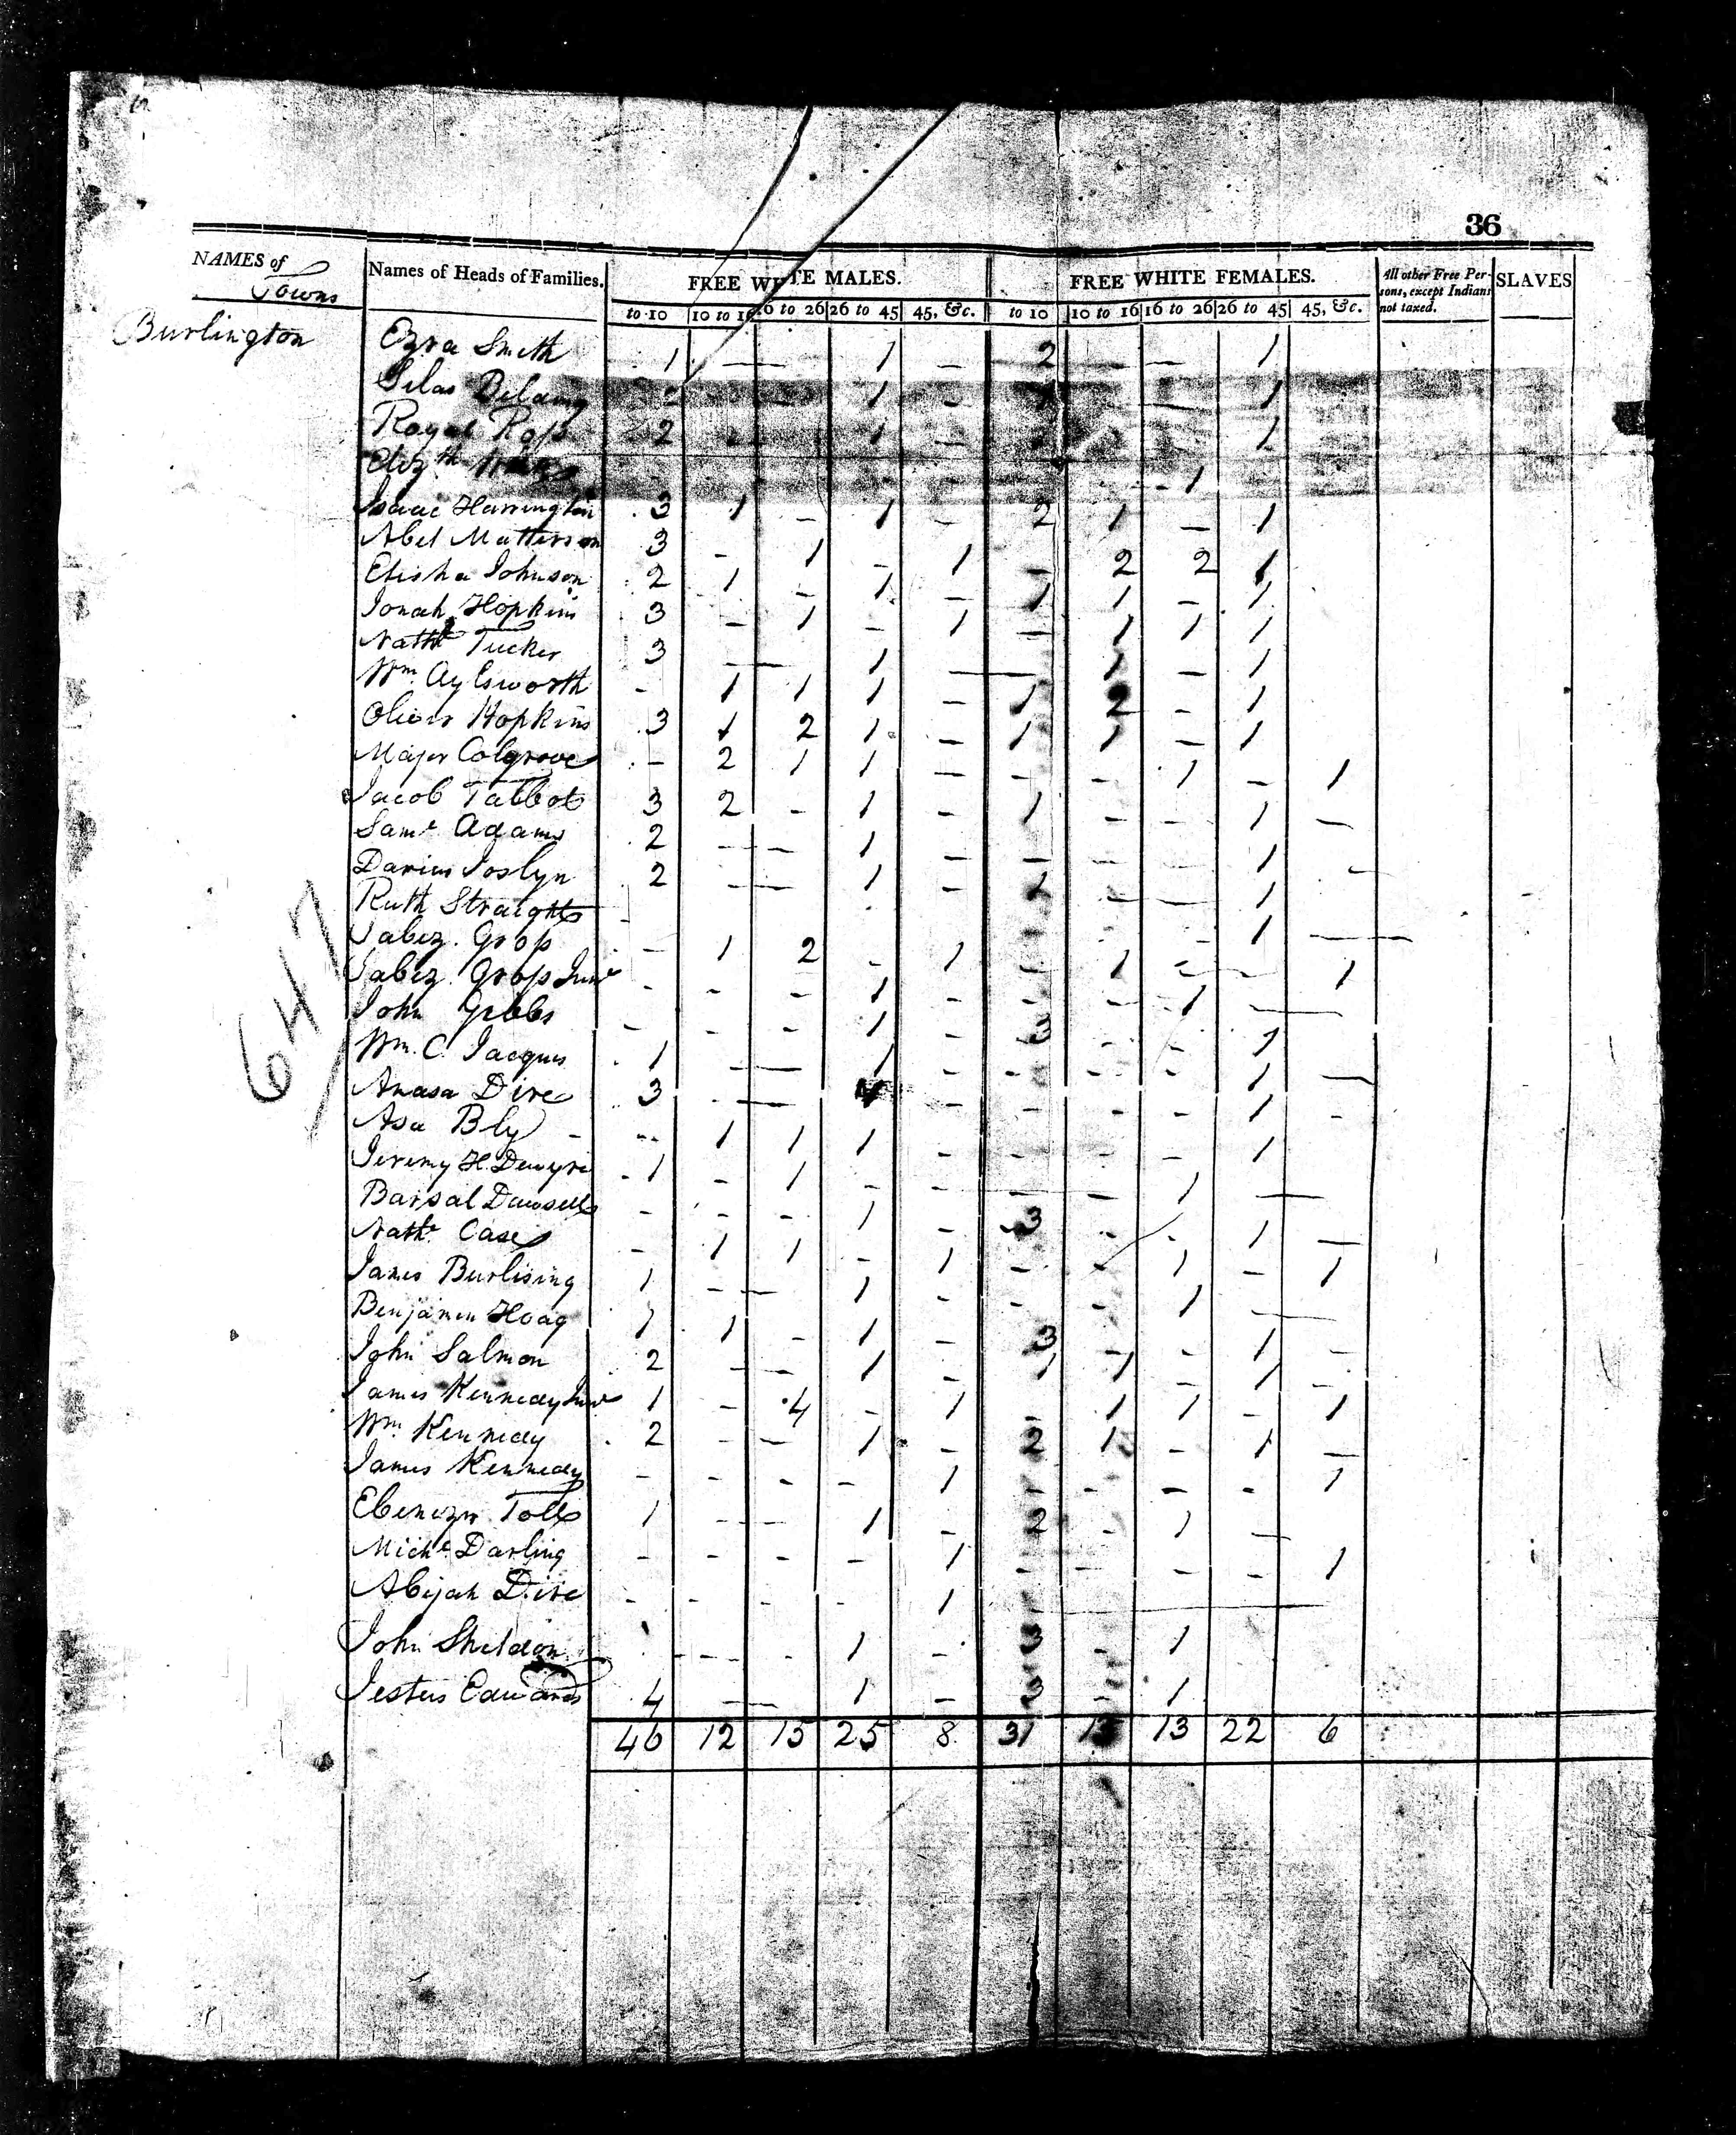 36
NAMES of Towns | Names of Heads of Families. | FREE WHITE MALES. | FREE WHITE FEMALES. | All other Free Persons, except Indians not taxed. | SLAVES
to 10 | 10 to 16 | 16 to 26 | 26 to 45 | 45, &c. | to 10 | 10 to 16 | 16 to 26 | 26 to 45 | 45, &c.
Burlington Ezra Smith 1 — — 1 — 2 — — 1
Silas 1 – 1
Royal Ross 2 1 – 1
Elizth 1
Isaac Harrington 3 1 – 1 – 2 1 – 1
Abel Matterson 3 – 1 1 – 2 2 1
Elisha Johnson 2 1 – 1 – 1 1 – 1
Jonah Hopkins 3 – 1 – 1 – 1 1 1
Nathl Tucker 3 — — 1 — — 1 – 1
Wm. Aylsworth – 1 1 1 1 2 – 1
Oliver Hopkins 3 1 2 1 – 1 1 – 1
Major Colgrove – 2 1 1 – – – 1 – 1
Jacob Talbot 3 2 – 1 – 1 – – 1 –
Saml Adams 2 – – 1 – – – – 1 –
Darius Joslyn 2 – – 1 – – – 1
Ruth Straight – – – 1
Jabez Gross – 1 2 – 1 – 1 – – 1
Jabez Gross Junr – – – 1 – – – 1 —
John Gibbs – – – 1 – 3 – – 1
Wm. C. Jacques 1 – – 1 – – – – 1 —
Amasa Dire 3 – – – – – – 1 –
Asa Bly – 1 1 1 – – – – 1
Jeremy H. 1 – 1 – – – – 1 —
– – – 1 – 3 – – 1 —
Nathl Case – 1 1 – 1 – – 1 – 1
James Burlising 1 – – 1 – – – 1 —
Benjamin Hoag 1 1 – 1 – 3 – – 1 –
John Salmon 2 – – 1 – 1 1 – 1 –
James Kennedy Junr 1 – 4 – 1 – 1 1 – 1
Wm. Kennedy 2 – – 1 – 2 1 – 1 —
James Kennedy – – – – 1 – – – 1
Ebenezer Tolls 1 – – 1 – 2 – 1 —
Michl Darling – – – – 1 – – – 1
Abijah Dire – – – – 1
John Sheldon – – – 1 – 3 – 1
Jestus Edwards 4 – – 1 – 3 – 1
46 12 15 25 8 31 13 13 22 6
647